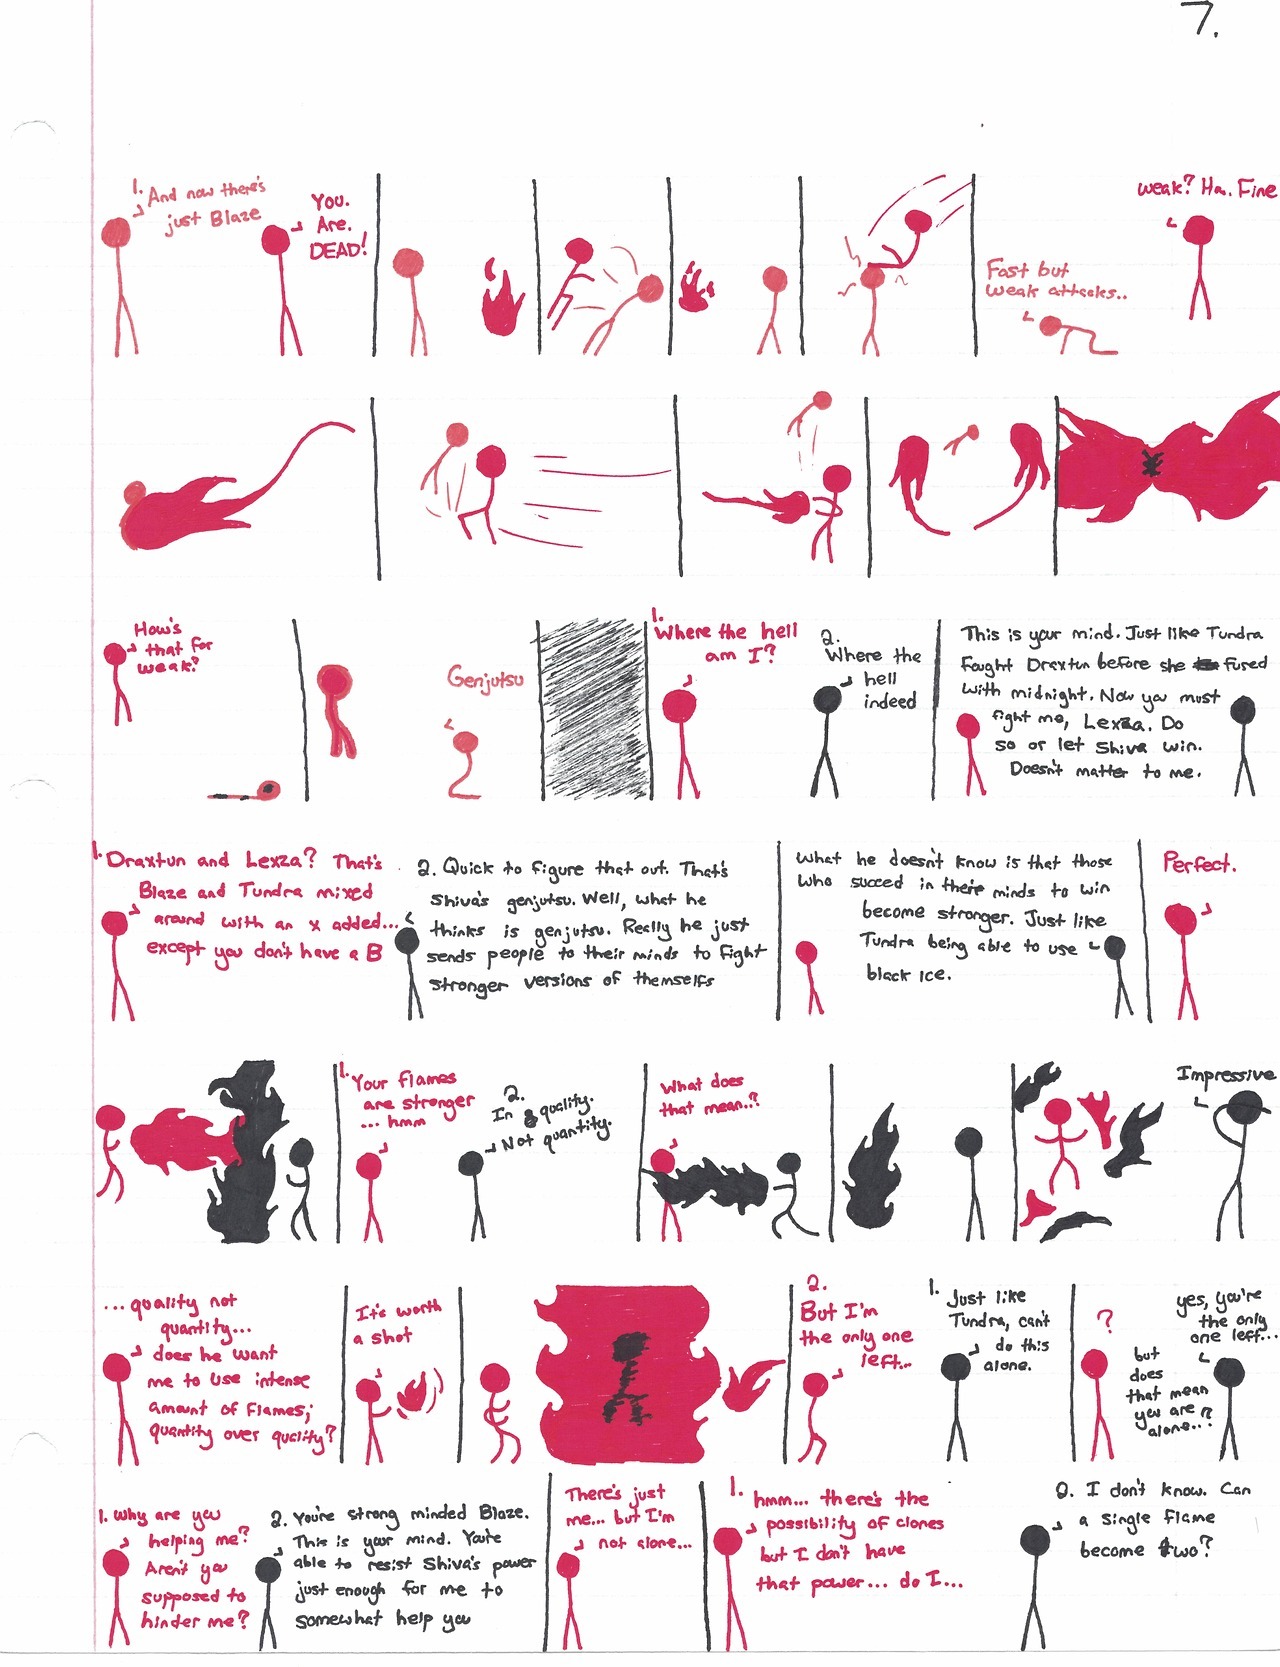 7.
1. And now there's
just Blaze
You.
Are.
DEAD!
Fast but
weak attacks..
weak? Ha. Fine
How's
that for
weak?
Genjutsu
1. Where the hell
am I?
2.
Where the
hell
indeed
This is your mind. Just like Tundra
fought Draxtun before she fused
with midnight. Now you must
fight me, Lexza. Do
so or let Shiva win.
Doesn't matter to me.
1. Draxtun and Lexza? That's
Blaze and Tundra mixed
around with an x added...
except you don't have a B
2. Quick to figure that out. That's
Shiva's genjutsu. Well, what he
thinks is genjutsu. Really he just
sends people to their minds to fight
stronger versions of themselfs
What he doesn't know is that those
who succed in their minds to win
become stronger. Just like
Tundra being able to use
black ice.
Perfect.
1. Your flames
are stronger
... hmm
2.
In quality.
Not quantity.
What does
that mean..?
Impressive
... quality not
quantity...
does he want
me to use intense
amount of flames;
quantity over quality?
It's worth
a shot
2.
But I'm
the only one
left...
1. Just like
Tundra, can't
do this
alone.
?
yes, you're
the only
one left...
but
does
that mean
you are
alone..?
1. Why are you
helping me?
Aren't you
supposed to
hinder me?
2. You're strong minded Blaze.
This is your mind. You're
able to resist Shiva's power
just enough for me to
somewhat help you
There's just
me... but I'm
not alone...
1. hmm... there's the
possibility of clones
but I don't have
that power... do I...
2. I don't know. Can
a single flame
become two?